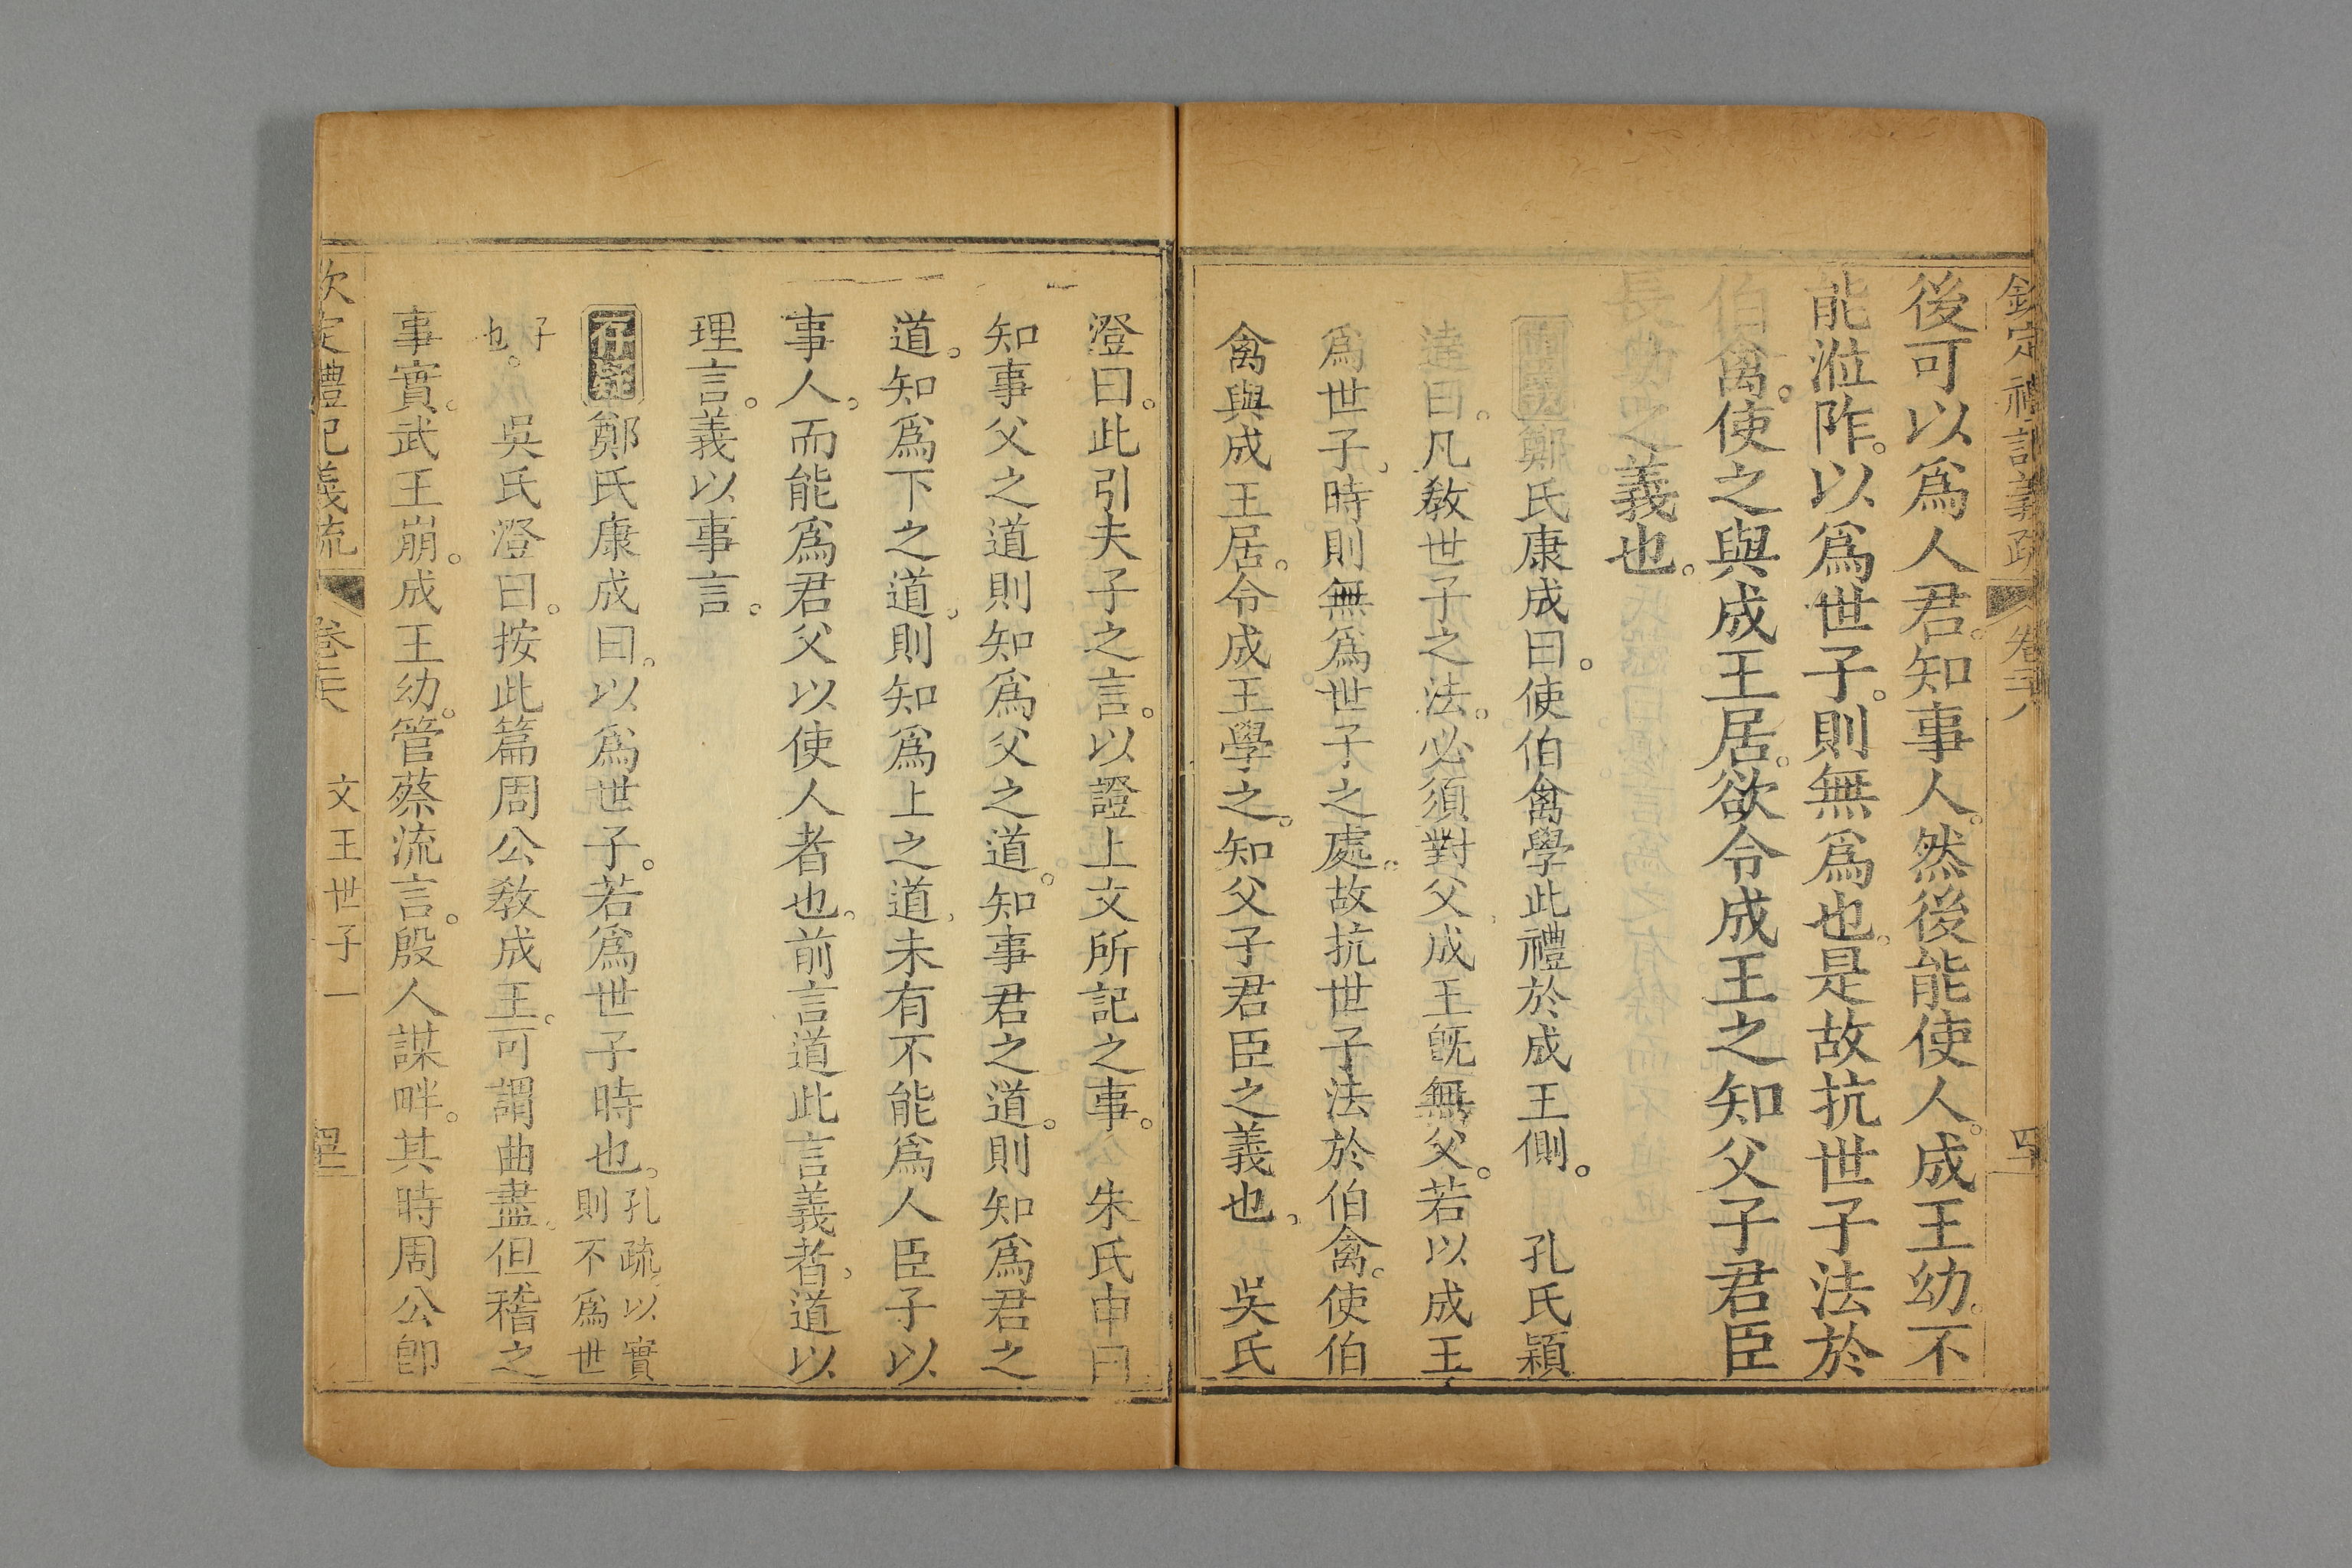 欽定禮記義疏 卷二十八
後可以爲人君。知事人。然後能使人。成王幼。不
能涖阼。以爲世子。則無爲也。是故抗世子法於
伯禽。使之與成王居。欲令成王之知父子君臣
長幼之義也。
鄭氏康成曰。使伯禽學此禮於成王側。 孔氏穎
達曰。凡敎世子之法。必須對父。成王旣無父。若以成王
爲世子。時則無爲世子之處。故抗世子法於伯禽。使伯
禽與成王居。令成王學之。知父子君臣之義也。 吳氏
澄曰。此引夫子之言。以證上文所記之事。 朱氏申曰
知事父之道則知爲父之道。知事君之道。則知爲君之
道。知爲下之道。則知爲上之道。未有不能爲人臣子以
事人。而能爲君父以使人者也。前言道此言義者。道以
理言。義以事言。
存疑 鄭氏康成曰。以爲世子。若爲世子時也。孔疏。以實則不爲世
子也。 吳氏澄曰。按此篇周公敎成王。可謂曲盡。但稽之
事實。武王崩。成王幼。管蔡流言。殷人謀畔。其時周公卽
欽定禮記義疏 卷二十八 文王世子一